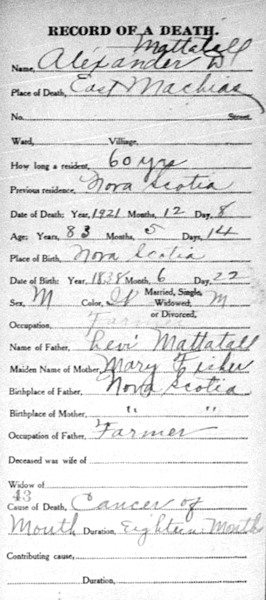 RECORD OF A DEATH.
Mattatall
Name, Alexander W
Place of Death, East Machias
No. Street.
Ward, Village,
How long a resident, 60 yrs
Previous residence, Nova Scotia
Date of Death: Year, 1921 Months, 12 Day, 8
Age: Years, 83 Months, 5 Days, 14
Place of Birth, Nova Scotia
Date of Birth: Year, 1838 Month, 6 Day, 22
Sex, M Color, W Married, Single, Widowed, or Divorced, M
Occupation, Farmer
Name of Father, Levi Mattatall
Maiden Name of Mother, Mary Fisher
Birthplace of Father, Nova Scotia
Birthplace of Mother, " "
Occupation of Father, Farmer
Deceased was wife of
Widow of
43
Cause of Death, Cancer of
Mouth Duration, Eighteen Month
Contributing cause,
Duration,